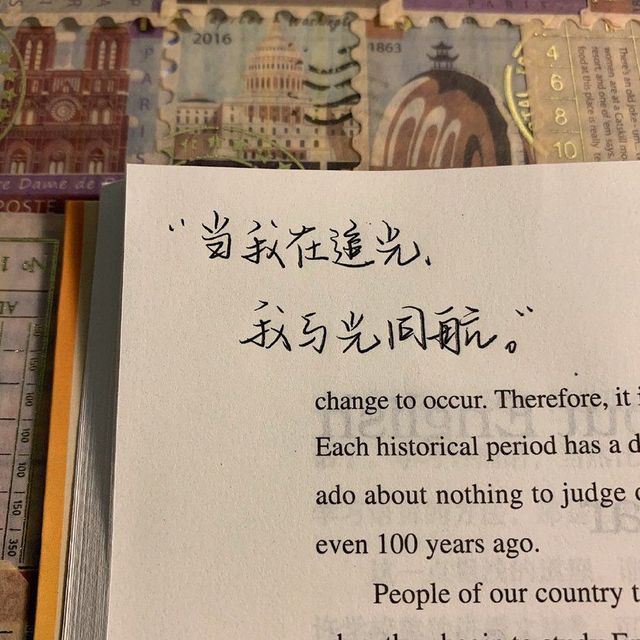 2016
1863
PARIS
4
6
8
10
There's an old joke
resort and one of em says
food at this place is really
Dame de
POSTE
“当我在追光,
我与光同航。”
change to occur. Therefore, it
Each historical period has a
ado about nothing to judge
even 100 years ago.
People of our country
50
100
150
350